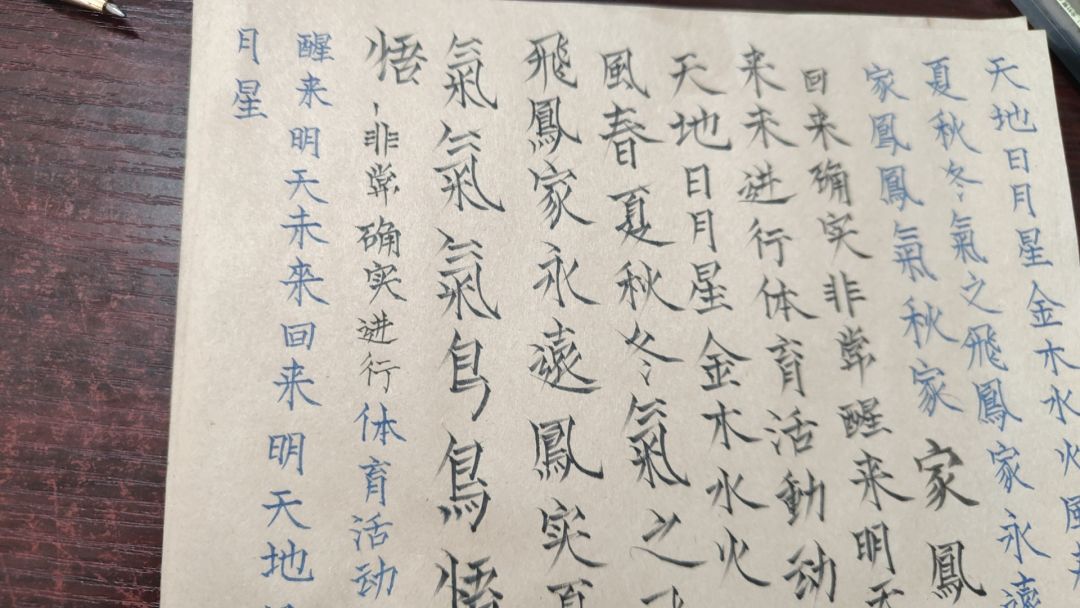 天地日月星金木水火風
夏秋冬氣之飛鳳家永遠
家鳳鳳氣秋家家鳳
回来确实非常醒来明天
来未进行体育活動动
天地日月星金木水火
風春夏秋冬氣之
飛鳳家永遠鳳实夏
氣氣氣鳥鳥悟
悟、非常确实进行体育活动
醒来明天未来回来明天地
月星